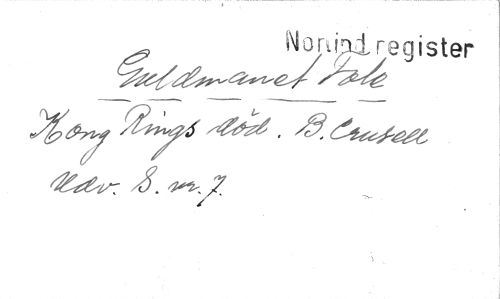 Norind.register
Guldmanet Fole
Kong Rings död. B. Crusell
Udv. S. nr. 7.